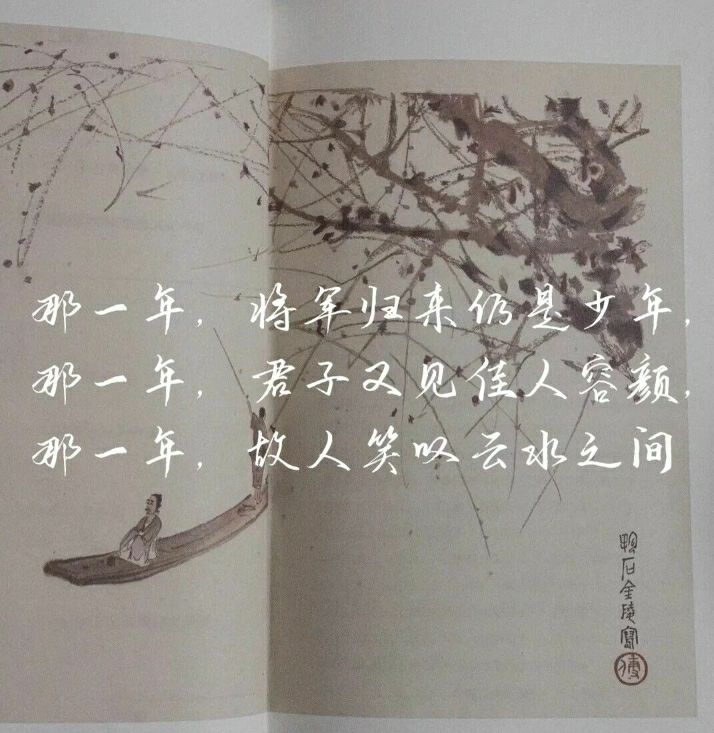 那一年，将军归来仍是少年，
那一年，君子又见佳人容颜，
那一年，故人笑叹云水之间
抱石金陵写
傅